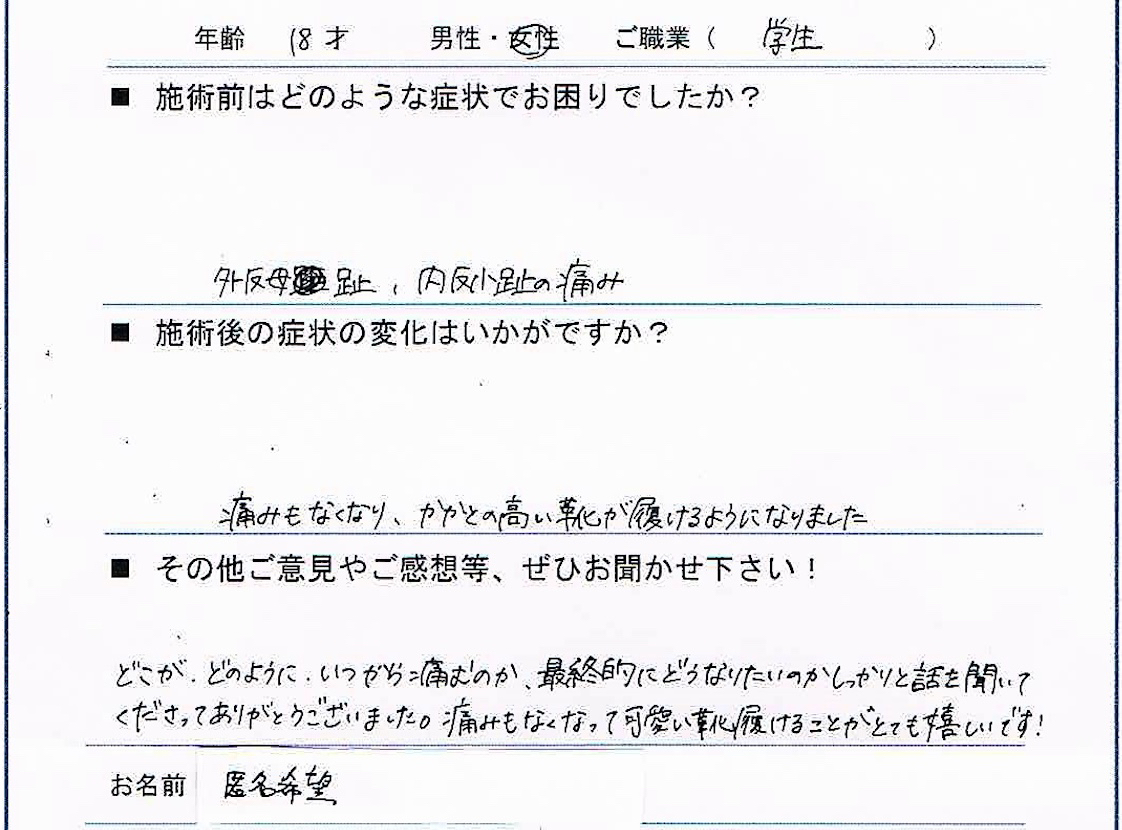 年齢 18才 男性・女性 ご職業( 学生 )
■ 施術前はどのような症状でお困りでしたか？
外反母趾、内反小趾の痛み
■ 施術後の症状の変化はいかがですか？
痛みもなくなり、かかとの高い靴が履けるようになりました
■ その他ご意見やご感想等、ぜひお聞かせ下さい！
どこが、どのように、いつから痛むのか、最終的にどうなりたいのかしっかりと話を聞いて
くださってありがとうございました。痛みもなくなって可愛い靴履けることがとても嬉しいです！
お名前 匿名希望